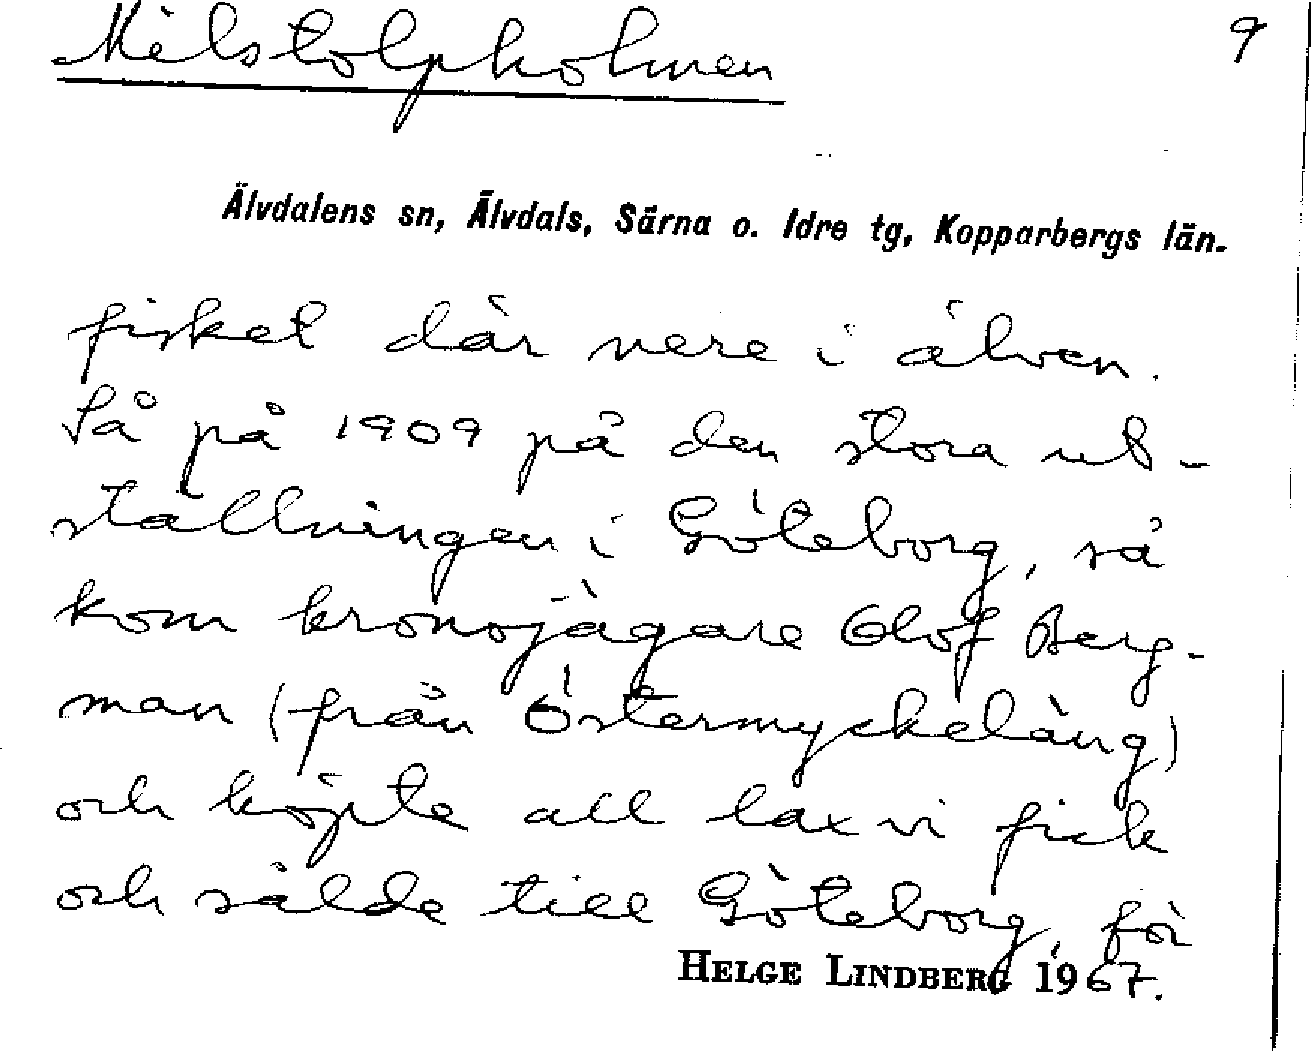 Milstolpholmen 9
Älvdalens sn, Älvdals, Särna o. Idre tg, Kopparbergs län.
fisket där nere i älven.
Så på 1909 på den stora ut-
ställningen i Göteborg, så
kom kronojägare Olof Berg-
man (från Östermyckeläng)
och köpte all lax vi fick
och sålde till Göteborg, för
HELGE LINDBERG 1967.